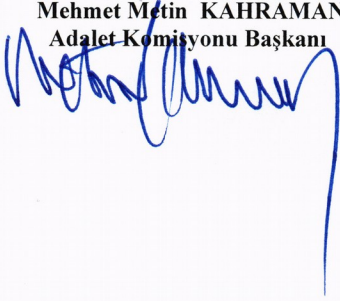 Mehmet Metin KAHRAMAN
Adalet Komisyonu Başkanı